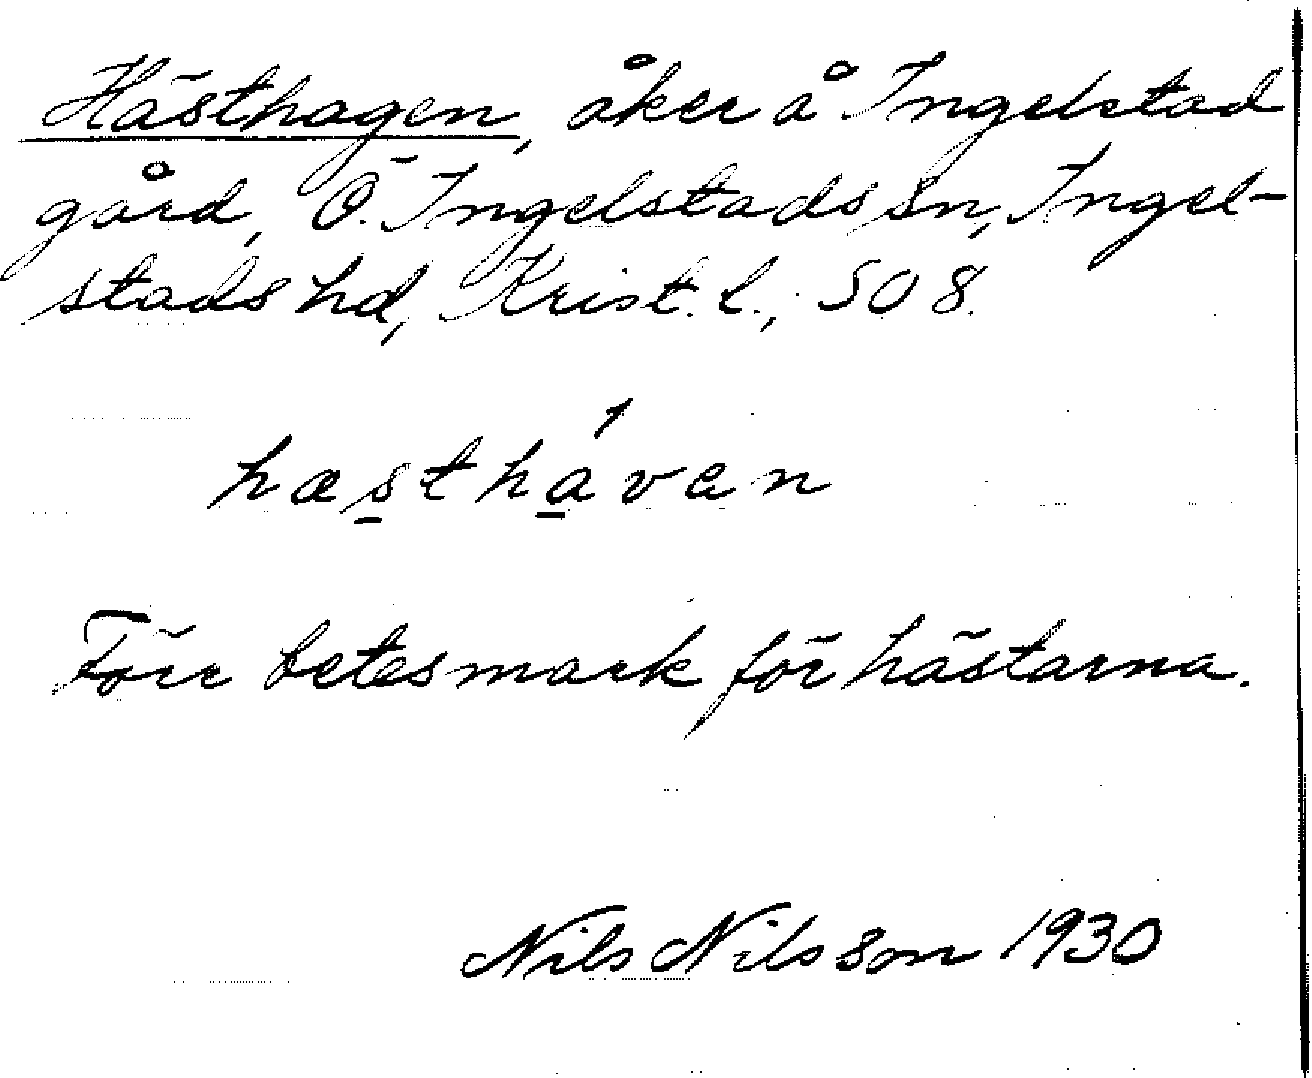 Hästhagen, åker å Ingelstad
gård, Ö. Ingelstads sn, Ingel-
stads hd, Krist. l., 508.
hæsthávan
Förr betesmark för hästarna.
Nils Nilsson 1930